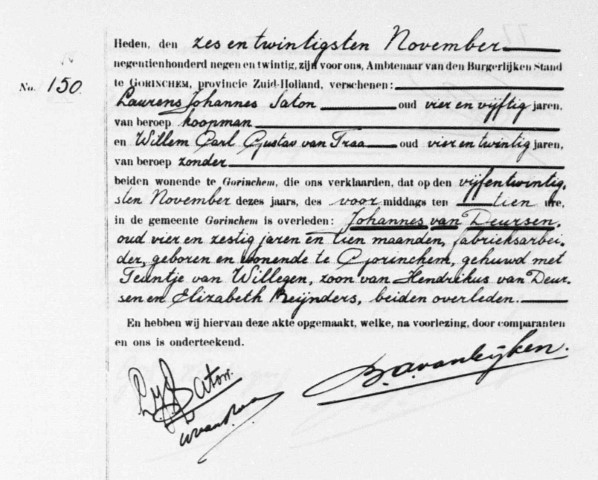 Heden, den zes en twintigsten November
negentienhonderd negen en twintig, zijn voor ons, Ambtenaar van den Burgerlijken Stand
No. 150. te GORINCHEM, provincie Zuid-Holland, verschenen:
Laurens Johannes Saton oud vier en vijftig jaren,
van beroep koopman
en Willem Carl Gustav van Traa oud vier en twintig jaren,
van beroep zonder
beiden wonende te Gorinchem, die ons verklaarden, dat op den vijfentwintig-
sten November dezes jaars, des voor middags ten tien ure,
in de gemeente Gorinchem is overleden: Johannes van Deursen,
oud vier en zestig jaren en tien maanden, fabrieksarbei-
der, geboren en wonende te Gorinchem, gehuwd met
Teuntje van Willegen, zoon van Hendrikus van Deur-
sen en Elizabeth Reijnders, beiden overleden.
En hebben wij hiervan deze akte opgemaakt, welke, na voorlezing, door comparanten
en ons is onderteekend.
LJ Saton.